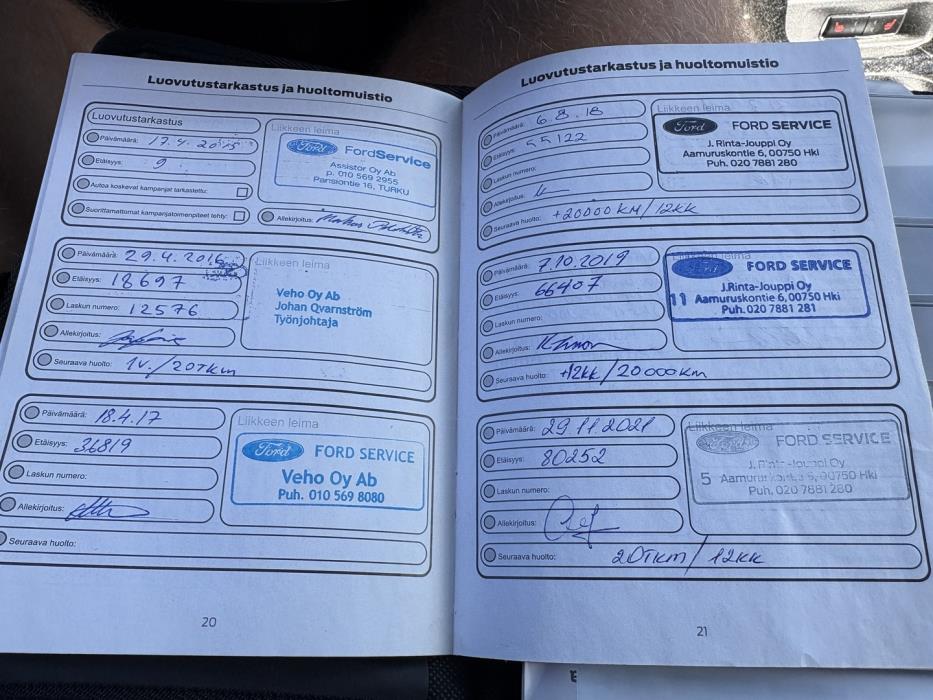 Luovutustarkastus ja huoltomuistio
Luovutustarkastus
Päivämäärä: 17.4.2015
Etäisyys: 9
Autoa koskevat kampanjat tarkastettu:
Suorittamattomat kampanjatoimenpiteet tehty:
Liikkeen leima
Ford FordService
Assistor Oy Ab
p. 010 569 2955
Pansiontie 16, TURKU
Allekirjoitus:
Päivämäärä: 29.4.2016
Etäisyys: 18697
Laskun numero: 12576
Allekirjoitus:
Seuraava huolto: 1v. / 20Tkm
Liikkeen leima
Veho Oy Ab
Johan Qvarnström
Työnjohtaja
Päivämäärä: 18.4.17
Etäisyys: 36819
Laskun numero:
Allekirjoitus:
Seuraava huolto:
Liikkeen leima
Ford FORD SERVICE
Veho Oy Ab
Puh. 010 569 8080
20
Luovutustarkastus ja huoltomuistio
Päivämäärä: 6.8.18
Etäisyys: 55122
Laskun numero:
Allekirjoitus:
Seuraava huolto: +20000 KM/12kk
Liikkeen leima
Ford FORD SERVICE
J. Rinta-Jouppi Oy
Aamuruskontie 6, 00750 Hki
Puh. 020 7881 280
Päivämäärä: 7.10.2019
Etäisyys: 66407
Laskun numero:
Allekirjoitus:
Seuraava huolto: +12kk / 20 000km
Liikkeen leima
Ford FORD SERVICE
J.Rinta-Jouppi Oy
11 Aamuruskontie 6, 00750 Hki
Puh. 020 7881 281
Päivämäärä: 29.11.2021
Etäisyys: 80252
Laskun numero:
Allekirjoitus:
Seuraava huolto: 20Tkm / 12kk
Liikkeen leima
Ford FORD SERVICE
J. Rinta-Jouppi Oy
5 Aamuruskontie 6, 00750 Hki
Puh. 020 7881 280
21